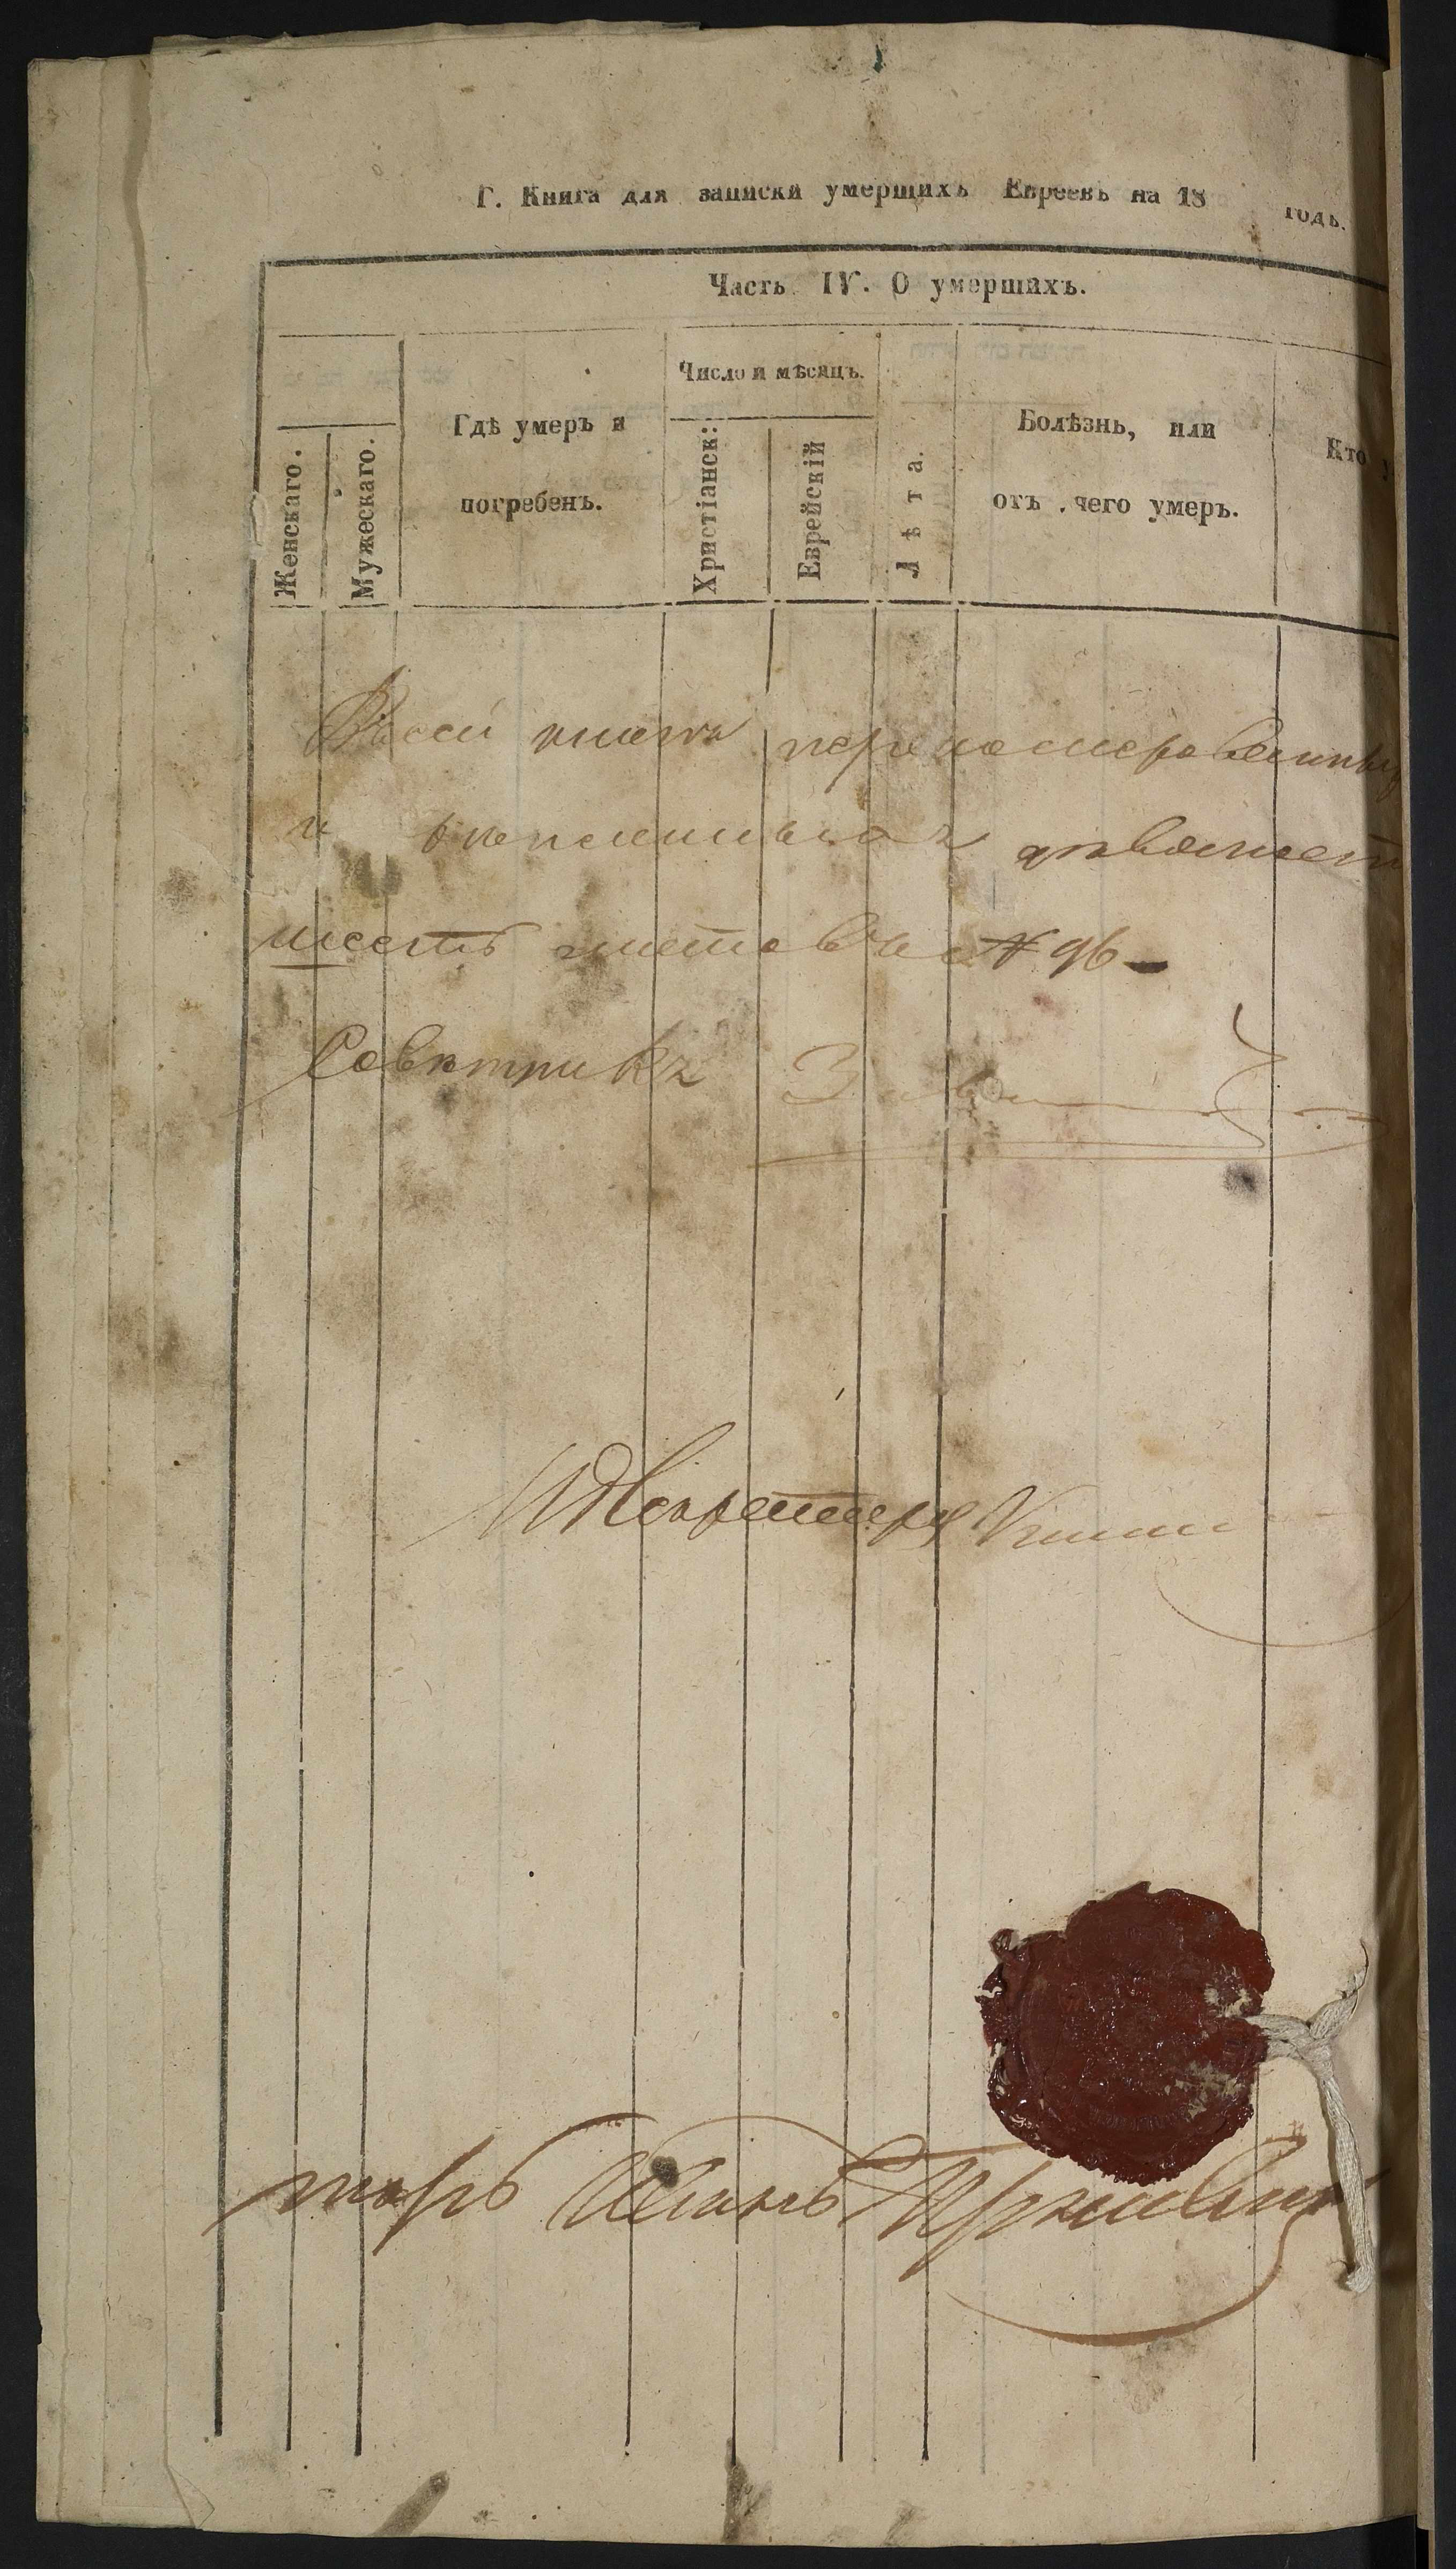 Г. Книга для записки умершихъ Евреевъ на 18 годъ.
Часть IV. О умершихъ.
Женскаго.
Мужескаго.
Гдѣ умеръ и
погребенъ.
Число и мѣсяцъ.
Христіанск:
Еврейскій
Лѣта.
Болѣзнь, или
отъ чего умеръ.
Кто
Въ сей книгѣ перенумерованныхъ
и девяност
шесть листовъ № 96
Совѣтникъ
Секретарь
Иванъ